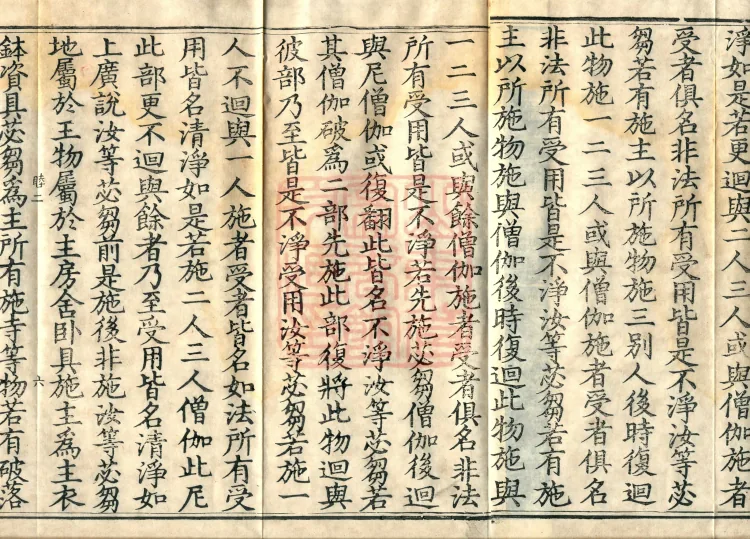 淨如是若更迴與二人三人或與僧伽施者
受者俱名非法所有受用皆是不淨汝等苾
芻若有施主以所施物施三别人後時復迴
此物施一二三人或與僧伽施者受者俱名
非法所有受用皆是不淨汝等苾芻若有施
主以所施物施與僧伽後時復迴此物施與
一二三人或與餘僧伽施者受者俱名非法
所有受用皆是不淨若先施苾芻僧伽後迴
與尼僧伽或復翻此皆名不淨汝等苾芻若
其僧伽破爲二部先施此部復將此物迴與
彼部乃至皆是不淨受用汝等苾芻若施一
人不迴與一人施者受者皆名如法所有受
用皆名清淨如是若施二人三人僧伽此尼
此部更不迴與餘者乃至受用皆名清淨如
上廣說汝等苾芻前是施後非施汝等苾芻
地屬於王物屬於主房舍卧具施主爲主衣
睦二 六
鉢資具苾芻爲主所有施寺等物若有破落